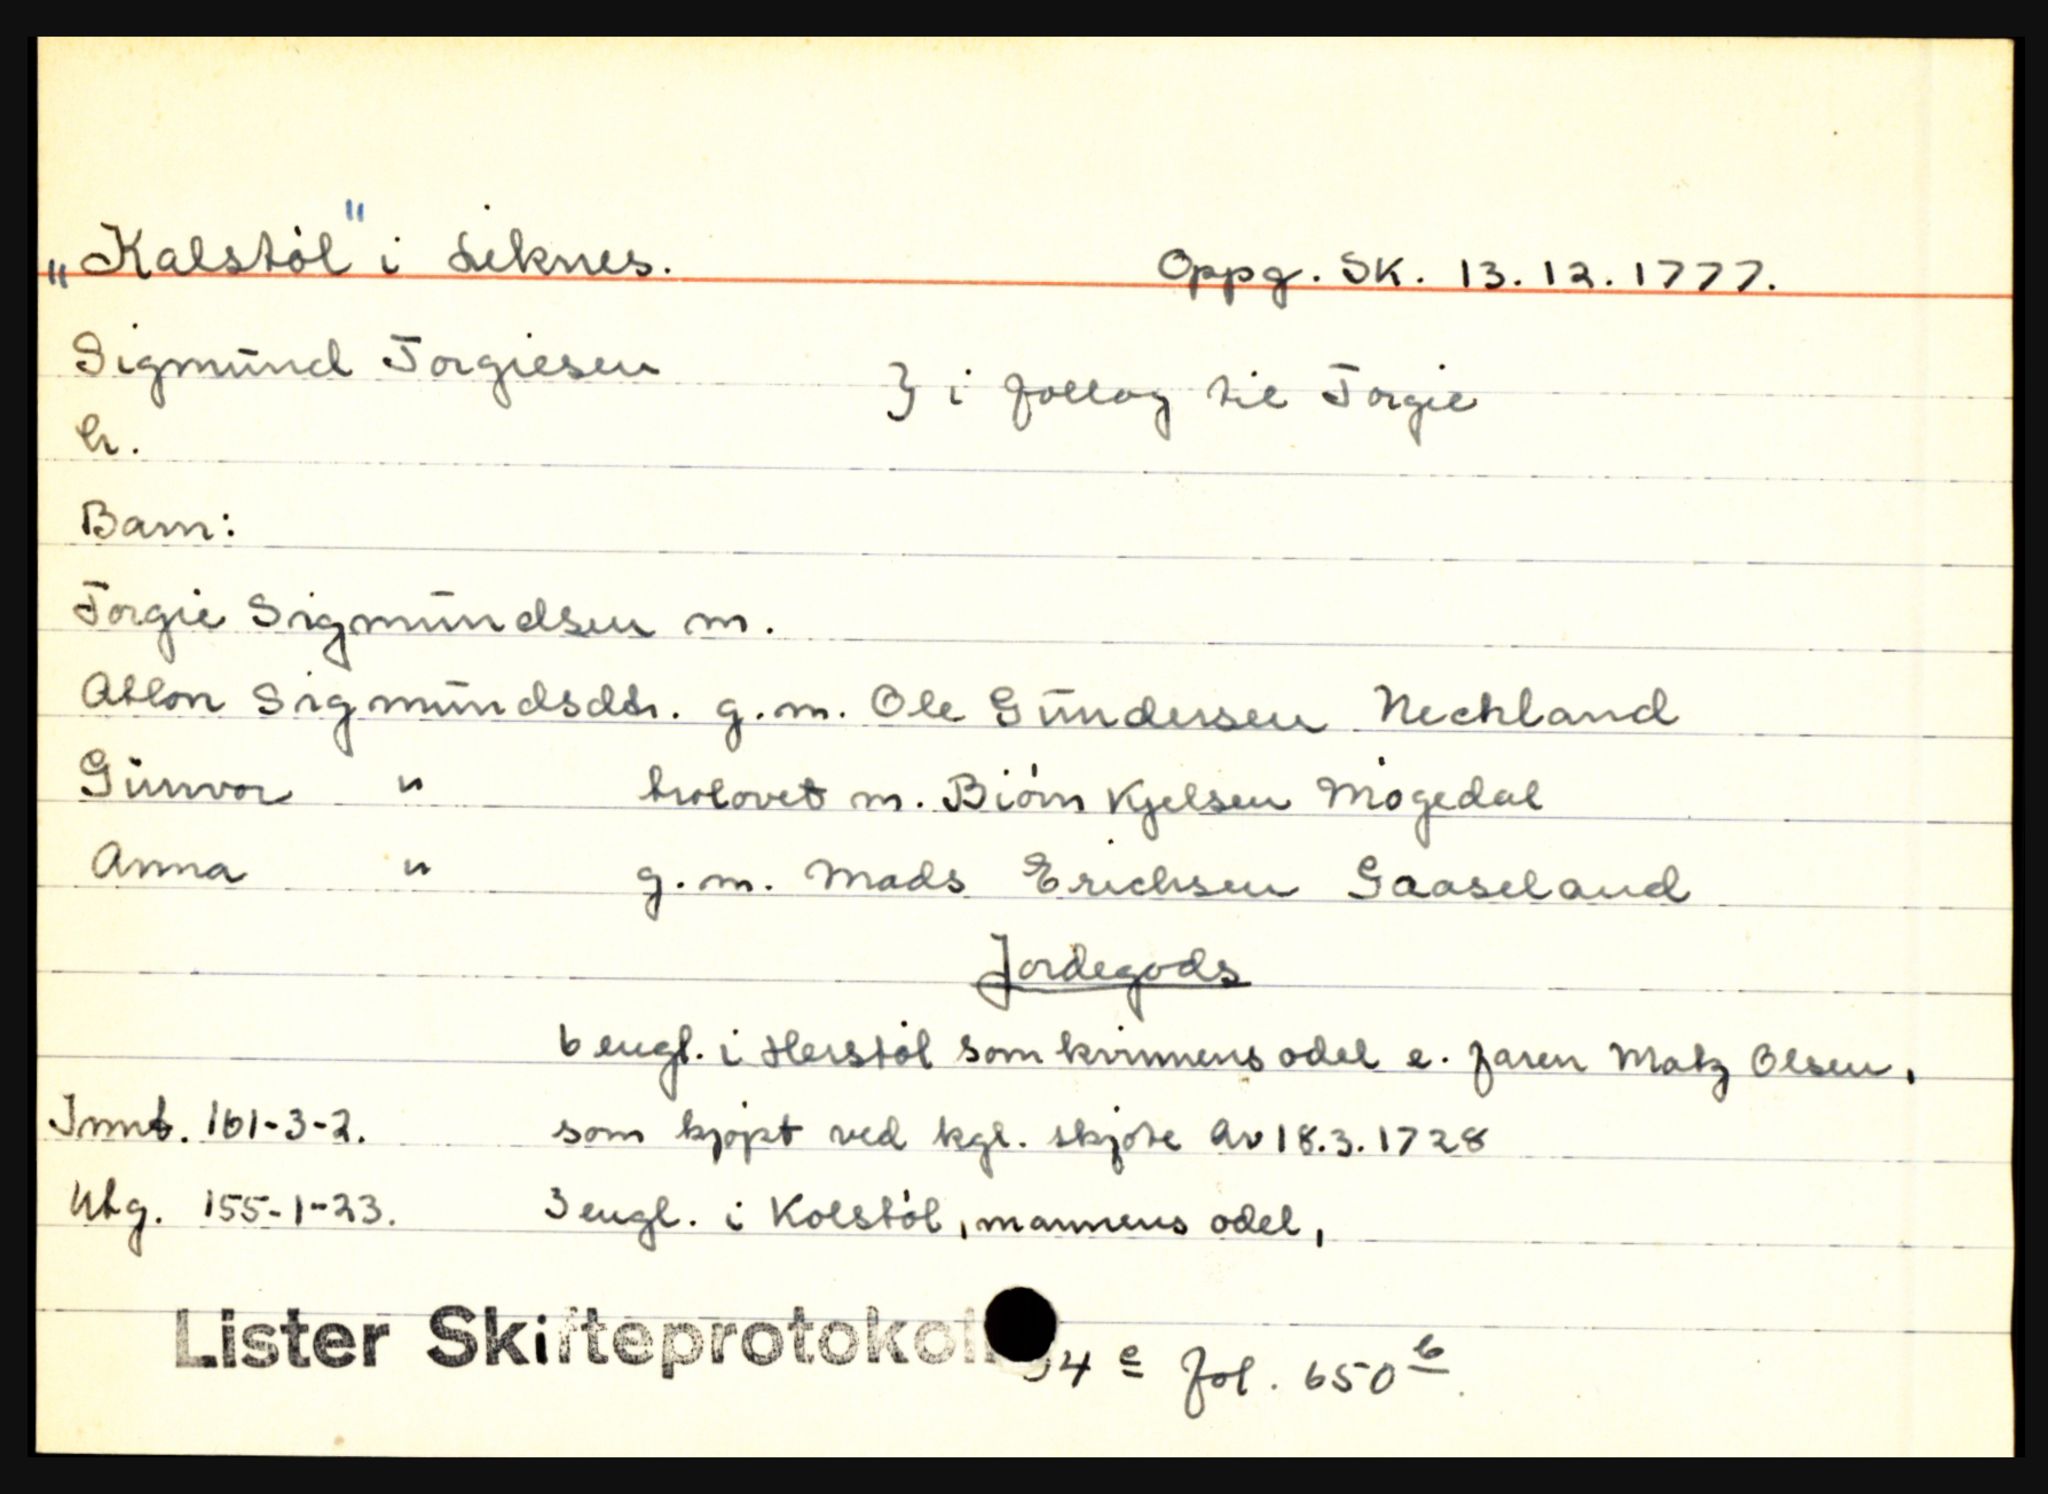 „Kalstöl" i Leknes. Oppg. SK. 13.12.1777.
Sigmund Torgiesen } i follag til Torgie
h.
Barn:
Torgie Sigmundsen m.
Atlon Sigmundsdtr. g.m. Ole Gundersen Neckland
Gunvor " trolovet m. Biörn Kjelsen Mögedal
Anna " g.m. Mads Erichsen Gaaseland
Jordegods
6 engl. i Herstöl som kvinnens odel e. faren Matz Olsen,
Innt. 161-3-2. som kjøpt ved kgl. skjøte av 18.3.1728
Utg. 155-1-23. 3 engl. i Kolstöl, mannens odel,
Lister Skifteprotokoll 4 e fol. 650 b